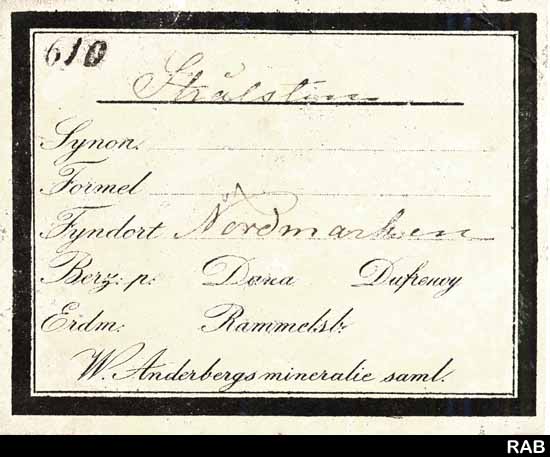 610
Strålsten
Synon.
Formel
Fyndort Nordmarken
Berz: p: Dana Dufrenoy
Erdm: Rammelsb:
W. Anderbergs mineralie saml.
RAB